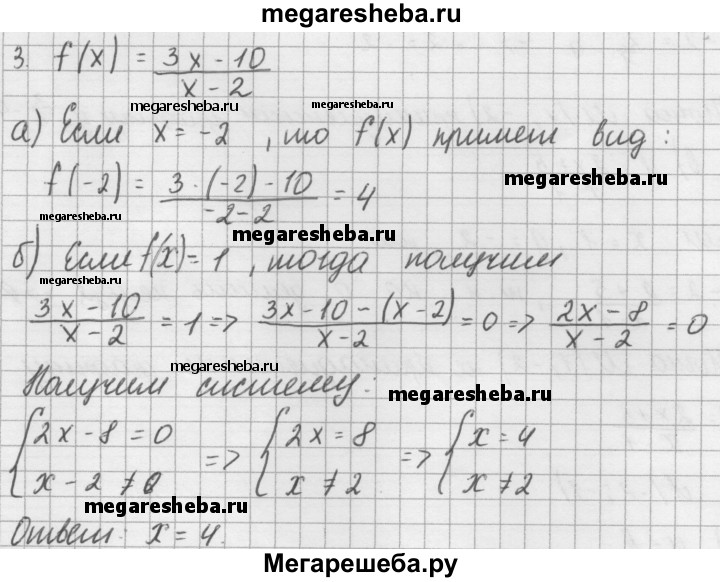 megaresheba.ru
3. f(x) = (3x - 10)/(x - 2)
megaresheba.ru megaresheba.ru
а) Если x = -2, то f(x) примет вид:
f(-2) = (3 · (-2) - 10)/(-2 - 2) = 4
megaresheba.ru
megaresheba.ru
megaresheba.ru
б) Если f(x) = 1, тогда получим
megaresheba.ru megaresheba.ru
(3x - 10)/(x - 2) = 1 => (3x - 10 - (x - 2))/(x - 2) = 0 => (2x - 8)/(x - 2) = 0
megaresheba.ru
Получим систему:
megaresheba.ru
{2x - 8 = 0 => {2x = 8 => {x = 4
x - 2 ≠ 0 x ≠ 2 x ≠ 2
megaresheba.ru
Ответ: x = 4.
Мегарешеба.ру